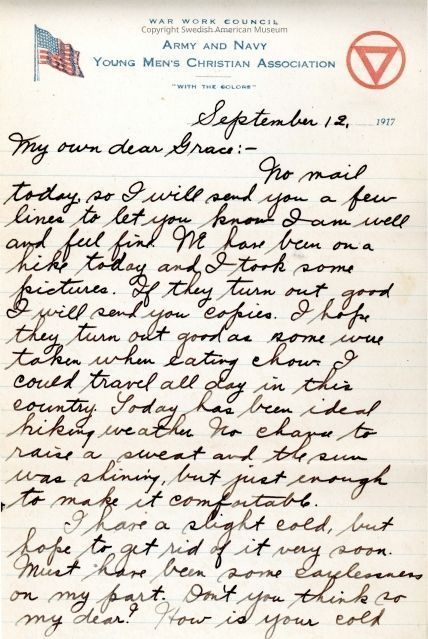 WAR WORK COUNCIL
Copyright Swedish American Museum
ARMY AND NAVY
YOUNG MEN'S CHRISTIAN ASSOCIATION
"WITH THE COLORS"
September 12, 1917
My own dear Grace:-
No mail
today, so I will send you a few
lines to let you know I am well
and feel fine. We have been on a
hike today and I took some
pictures. If they turn out good
I will send you copies. I hope
they turn out good as some were
taken when eating chow. I
could travel all day in this
country. Today has been ideal
hiking weather. No chance to
raise a sweat and the sun
was shining, but just enough
to make it comfortable.
I have a slight cold, but
hope to get rid of it very soon.
Must have been some carelessness
on my part. Don't you think so
my dear? How is your cold